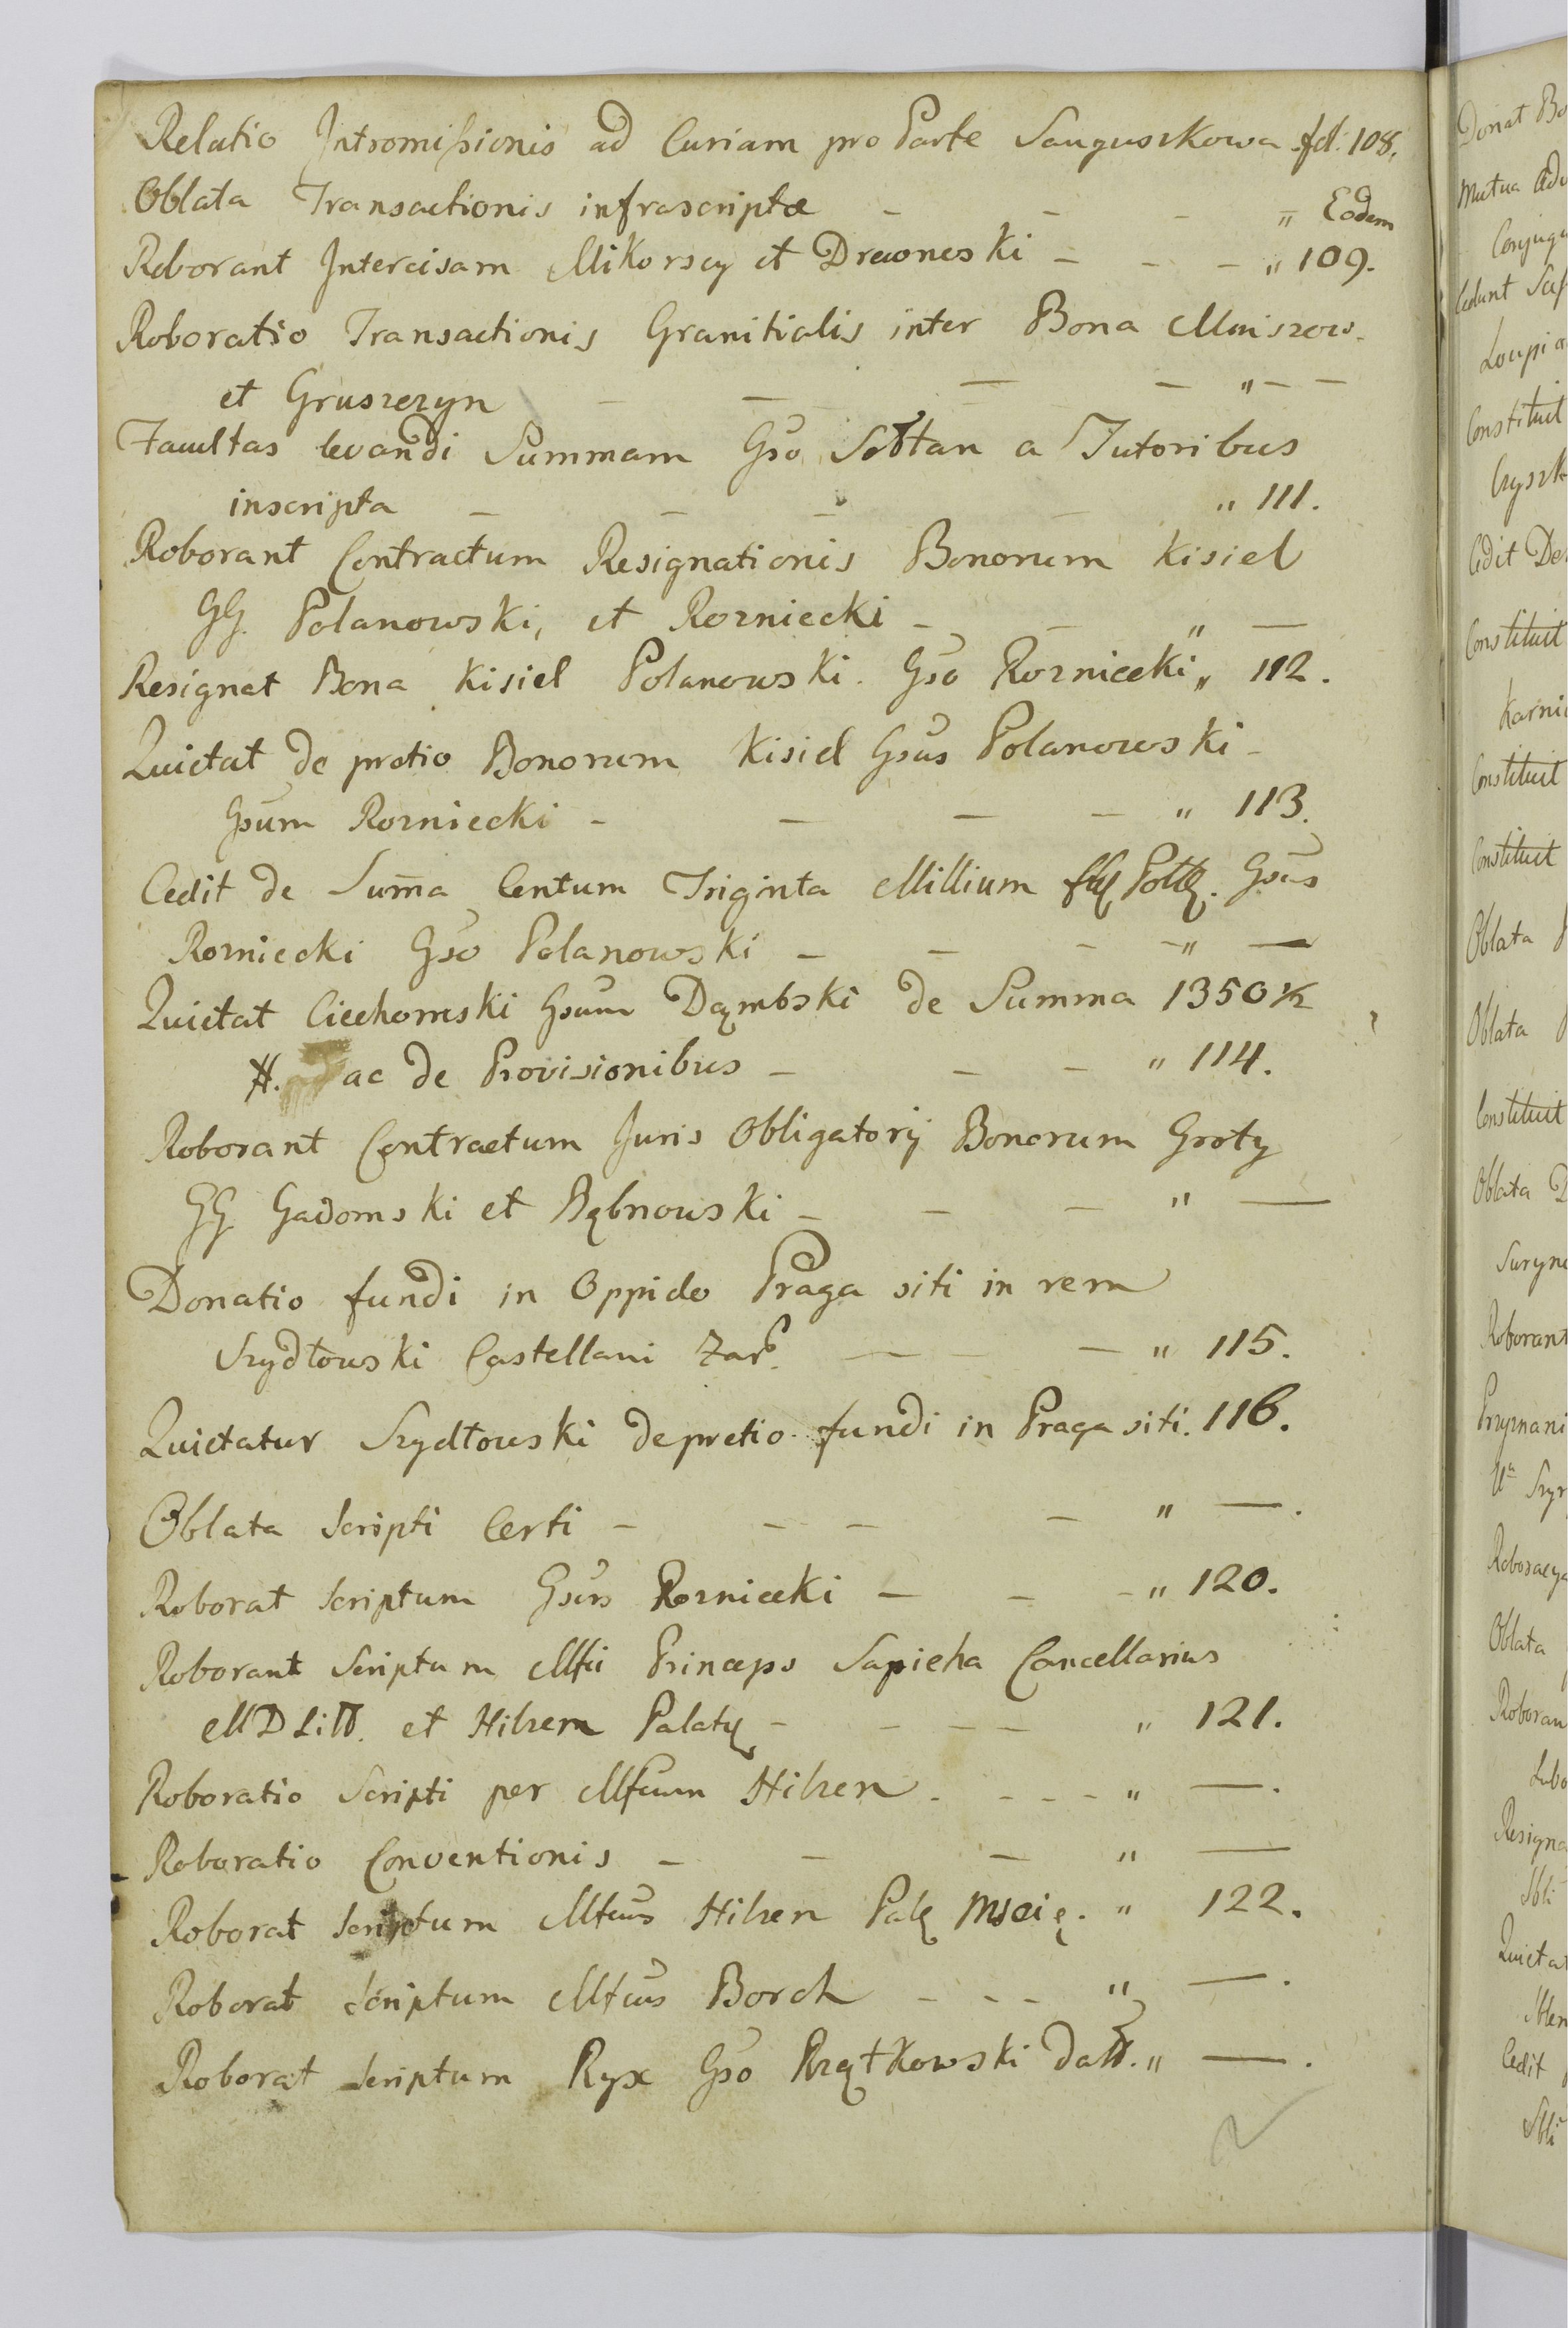 Relatio Intromissionis ad Curiam pro Parte Sanguszkowa fol: 108.
Oblata Transactionis infrascriptæ - - - „ Eodem
Roborant Intercisam Mikorscy et Drewnoski - - - „ 109.
Roboratio Transactionis Granitialis inter Bona Mniszew.
et Gruszczyn - - - - „ - -
Facultas levandi Summam Gso Sołtan a Tutoribus
inscripta - - - - „ 111.
Roborant Contractum Resignationis Bonorum Kisiel
GG. Polanowski, et Rozniecki - - „ —
Resignat Bona Kisiel Polanowski. Gso Rozniecki „ 112.
Quietat de pretio Bonorum Kisiel Gsus Polanowski -
Gsum Rozniecki - - - - „ 113.
Cedit de Suma Centum Triginta Millium Gsus
Rozniecki Gso Polanowski - - - - „ —
Quietat Ciechomski Gsum Dąmbski de Summa 1350 ½
#. ac de Provisionibus - - - „ 114.
Roborant Contractum Juris Obligatorij Bonorum Groty
GG Gadomski et Bębnowski - - - „ —
Donatio fundi in Oppido Praga siti in rem
Szydłowski Castellani Zar. — - — „ 115.
Quietatur Szydłowski de pretio fundi in Praga siti. 116.
Oblata Scripti Certi - - - - „ —.
Roborat Scriptum Gsus Rozniecki - - - „ 120.
Roborant Scriptum Mfci Princeps Sapieha Cancellarius
MDLitt. et Hilzen Palat - - - - „ 121.
Roboratio Scripti per Mfcum Hilzen. - - - „ —.
Roboratio Conventionis - - - „ —
Roborat Scriptum Mfcus Hilzen Pal Mscię. „ 122.
Roborat Scriptum Mfcus Borch - - - „ —.
Roborat Scriptum Ryx Gso „ —.
Donat
Mutua
Constituit
Cedit
Constituit
Constituit
Constituit
Oblata
Oblata
Constituit
Oblata
Roborant
Oblata
Cedit